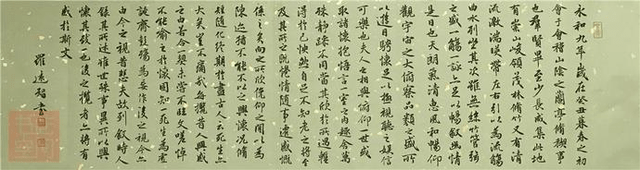 永和九年歲在癸丑暮春之初
會于會稽山陰之蘭亭脩禊事
也羣賢畢至少長咸集此地
有崇山峻領茂林脩竹又有清
流激湍暎帶左右引以為流觴
曲水列坐其次雖無絲竹管弦
之盛一觴一詠上足以暢敘幽情
是日也天朗氣清惠風和暢仰
觀宇宙之大俯察品類之盛所
以遊目騁懷足以極視聽之娛信
可樂也夫人之相與俯仰一世或
取諸懷抱悟言一室之內趣舍萬
殊靜躁不同當其欣於所遇輒
得於己怏然自足不知老之將至
及其所之既惓情隨事遷感慨
係之矣向之所欣俛仰之間以為
陳迹猶不能不以之興懷況脩
短隨化終期於盡古人云死生亦
大矣豈不痛哉每攬昔人興感
之由若合一契未嘗不臨文嗟悼
不能喻之於懷固知死生為虛
誕齊彭殤為妄作後之視今亦
由今之視昔悲夫故列敘時人
錄其所述雖世殊事異所以興
懷其致一也後之攬者亦將有
感於斯文
羅遠書